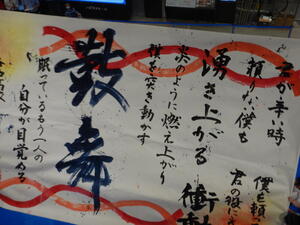 君が辛い時
僕を頼っ
頼りない僕も
君の役に
湧き上がる衝動
炎のように燃え上がり
僕を突き動かす
舞
眠っているもう一人の
自分が目覚める